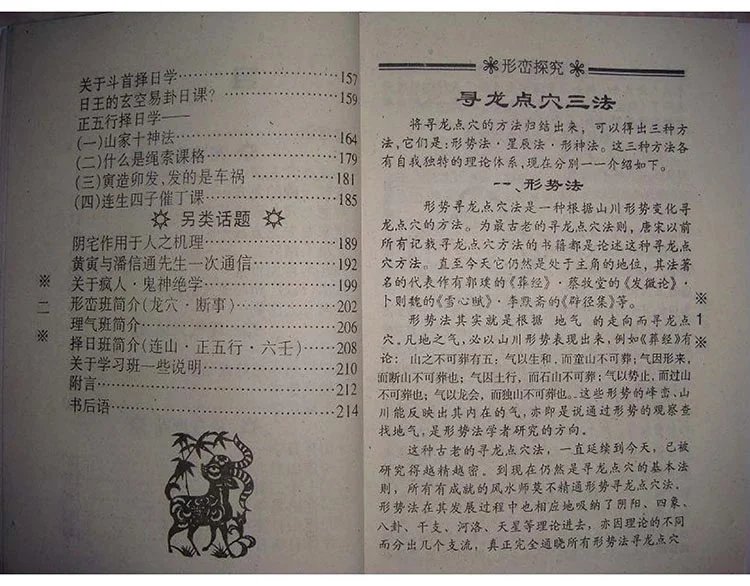 关于斗首择日学……157
日王的玄空易卦日课?……159
正五行择日学——
(一)山家十神法……164
(二)什么是绳索课格……179
(三)寅造卯发,发的是车祸……181
(四)连生四子催丁课……185
另类话题
阴宅作用于人之机理……189
黄寅与潘信通先生一次通信……192
关于疯人·鬼神绝学……199
形峦班简介(龙穴·断事)……202
理气班简介……206
择日班简介(连山·正五行·六壬)……208
关于学习班一些说明……210
附言……212
书后语……214
※二※
形峦探究
寻龙点穴三法
将寻龙点穴的方法归结出来,可以得出三种方
法,它们是:形势法·星辰法·形神法。这三种方法各
有自我独特的理论体系,现在分别一一介绍如下。
一、形势法
形势寻龙点穴法是一种根据山川形势变化寻
龙点穴的方法。为最古老的寻龙点穴法则,唐宋以前
所有记载寻龙点穴方法的书籍都是论述这种寻龙点
穴方法。直至今天它仍然是处于主角的地位,其法著
名的代表作有郭璞的《葬经》·蔡牧堂的《发微论》·
卜则巍的《雪心赋》·李默斋的《辟径集》等。
形势法其实就是根据 地气 的走向而寻龙点
穴。凡地之气,必以山川形势表现出来,例如《葬经》有
论: 山之不可葬有五:气以生和,而童山不可葬;气因形来,
而断山不可葬也;气因土行,而石山不可葬也;气以势止,而过山
不可葬也;气以龙会,而独山不可葬也。这些形势的峰峦、山
川能反映出其内在的气,亦即是说通过形势的观察查
找地气,是形势法学者研究的方向。
这种古老的寻龙点穴法,一直延续到今天,已被
研究得越精越密。到现在仍然是寻龙点穴的基本法
则,所有有成就的风水师莫不精通形势寻龙点穴法。
形势法在其发展过程中也相应地吸纳了阴阳、四象、
八卦、干支、河洛、天星等理论进去,亦因理论的不同
而分出几个支流,真正完全通晓所有形势法寻龙点穴
※1※